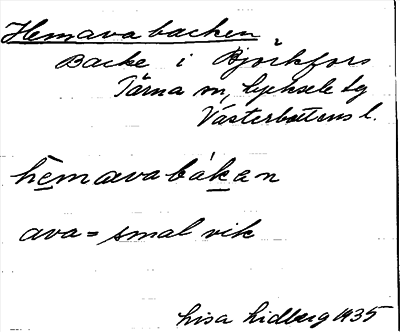 Hemavabacken
Backe i Björkfors
Tärna sn, Lycksele lg
Västerbottens l.
hēmavabákan
ava = smal vik
Lisa Lidberg 1935